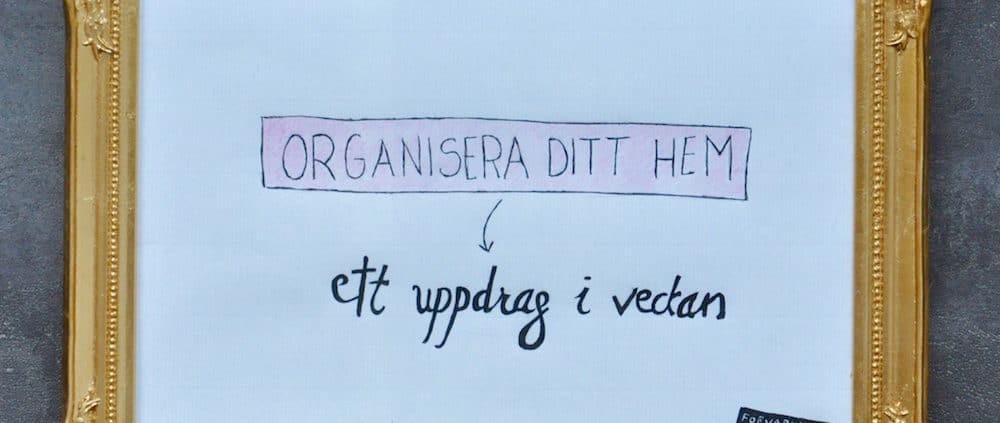 ORGANISERA DITT HEM
ett uppdrag i veckan